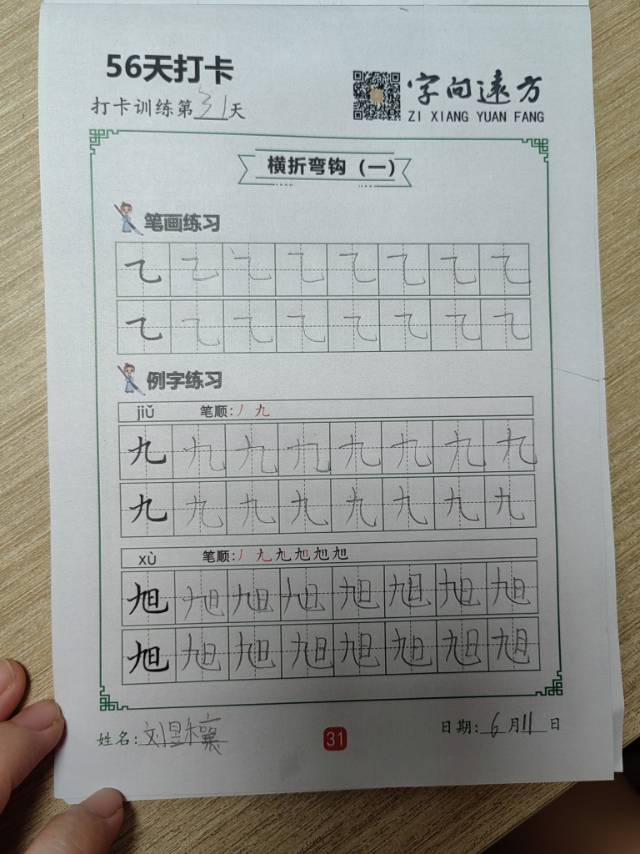 56天打卡
打卡训练第31天
字向远方
ZI XIANG YUAN FANG
横折弯钩（一）
笔画练习
乙 乙 乙 乙 乙 乙 乙 乙
乙 乙 乙 乙 乙 乙 乙 乙
例字练习
jiǔ 笔顺:丿 九
九 九 九 九 九 九 九 九
九 九 九 九 九 九 九 九
xù 笔顺:丿 九 九 旭 旭 旭
旭 旭 旭 旭 旭 旭 旭 旭
旭 旭 旭 旭 旭 旭 旭 旭
姓名:刘昱
31
日期:6月11日